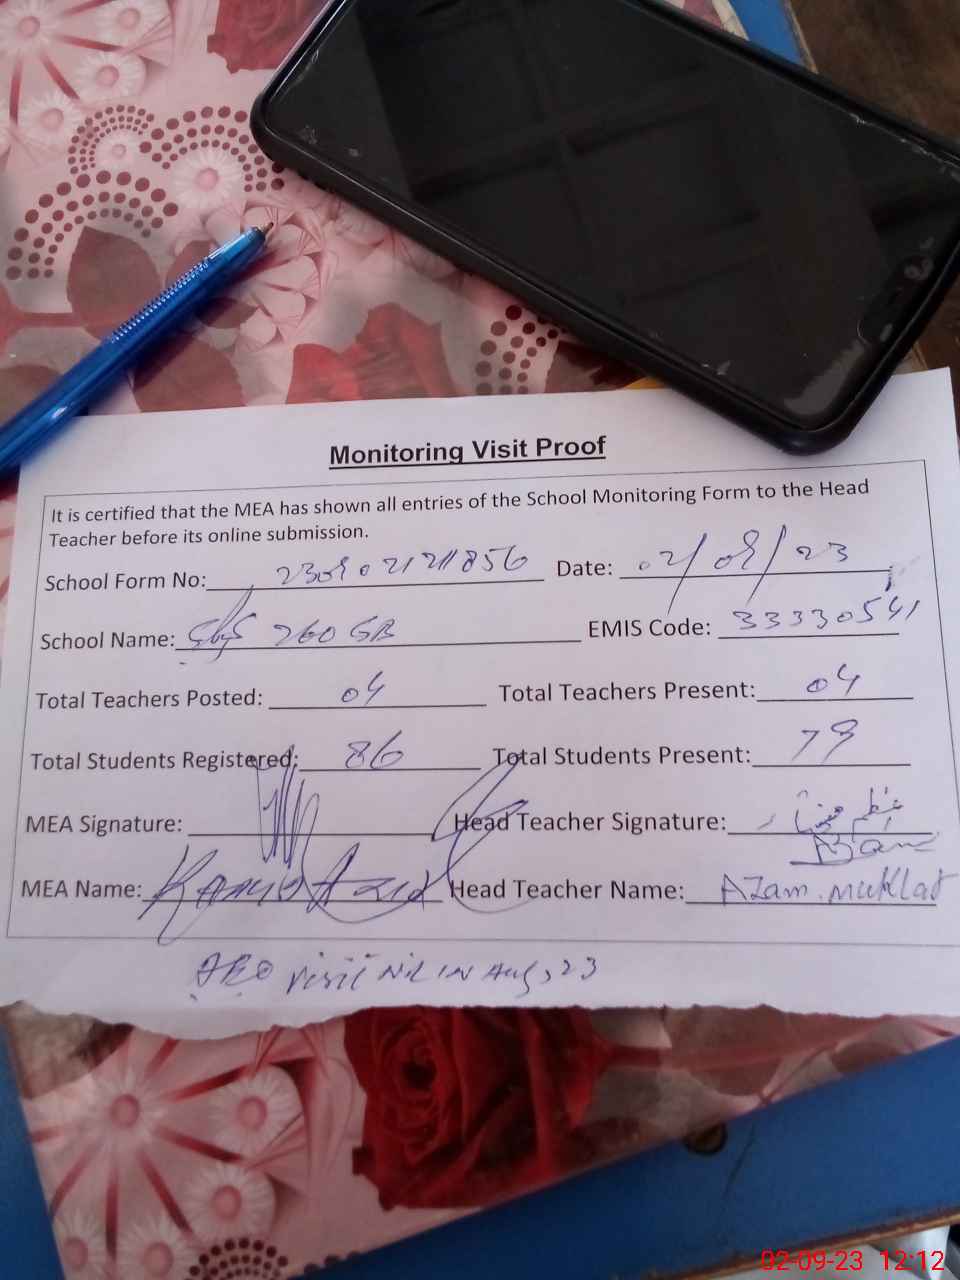 Monitoring Visit Proof
It is certified that the MEA has shown all entries of the School Monitoring Form to the Head
Teacher before its online submission.
School Form No: Date: 02/09/23
School Name: 260 GB EMIS Code: 33330541
Total Teachers Posted: 04 Total Teachers Present: 04
Total Students Registered: 86 Total Students Present: 79
MEA Signature: Head Teacher Signature: Azam
MEA Name: Head Teacher Name: Azam. Mukhtar
AEO visit Nil IN Aug, 23
02-09-23 12:12